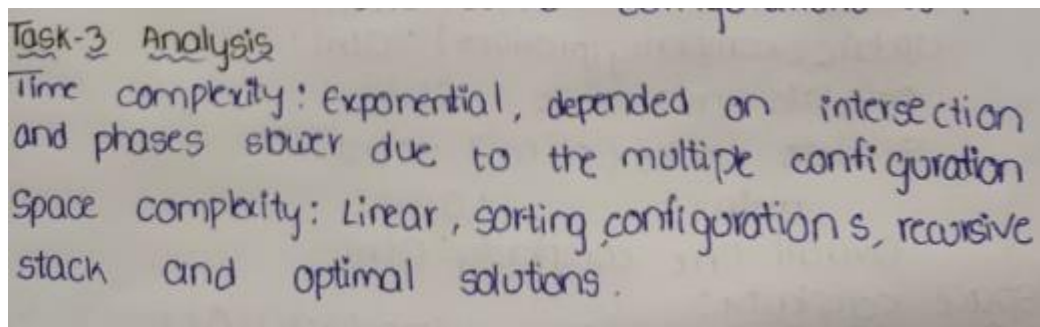 Task-3 Analysis
Time complexity: Exponential, depended on intersection
and phases slower due to the multiple configuration
Space complexity: Linear, sorting configurations, recursive
stack and optimal solutions.